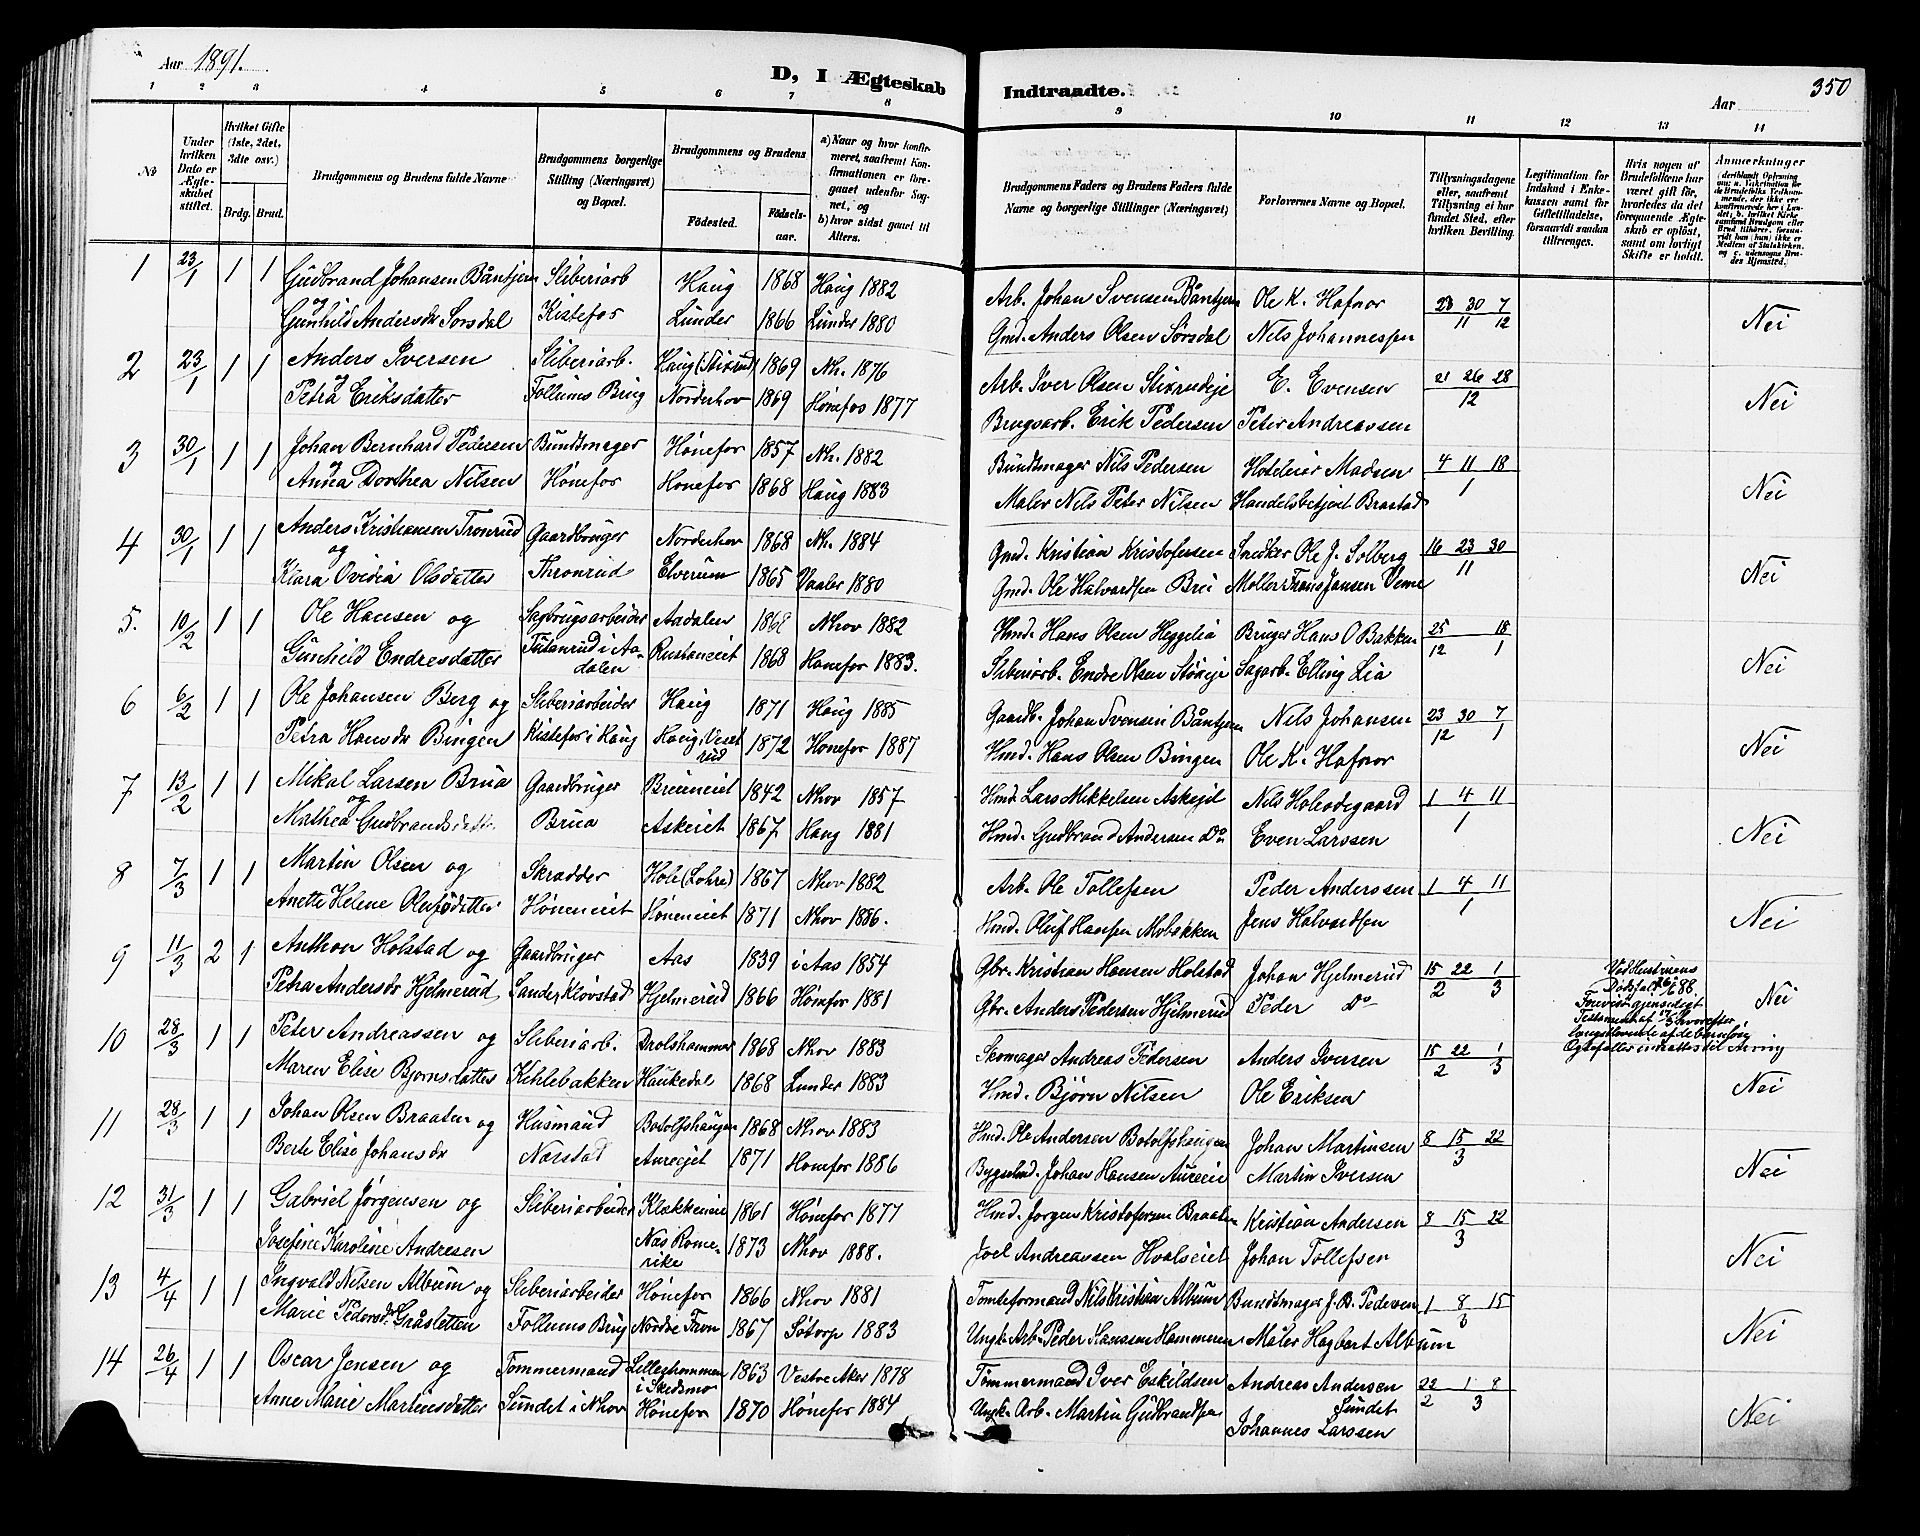 Aar 1891.
D, I Ægteskab Indtraadte.
Aar
350
1 2 3 4 5 6 7 8 9 10 11 12 13 14
No
Under hvilken Dato er Ægteskabet stiftet.
Hvilket Gifte (1ste, 2det, 3die osv.)
Brdg. Brud.
Brudgommens og Brudens fulde Navne
Brudgommens borgerlige Stilling (Næringsvei) og Bopæl.
Brudgommens og Brudens
Födested. Födselsaar.
a) Naar og hvor konfirmeret, saafremt Konfirmationen er foregaaet udenfor Sognet, og
b) hvor sidst gaaet til Alters.
Brudgommens Faders og Brudens Faders fulde Navne og borgerlige Stillinger (Næringsvei)
Forlovernes Navne og Bopæl.
Tillysningsdagene eller, saafremt Tillysning ei har fundet Sted, efter hvilken Bevilling.
Legitimation for Indskud i Enkekassen samt for Giftetilladelse, forsaavidt saadan tiltrænges.
Hvis nogen af Brudefolkene har været gift før, hvorledes da det foregaaende Ægteskab er oplöst, samt om lovligt Skifte er holdt.
Anmærkninger
1 23/1 1 1 Gudbrand Johansen Båntjern Sliberiarb Haug 1868 Haug 1882 Arb. Johan Svensen Båntjern Ole K. Hafnor 23 30 7
og Gunhild Andersdr Sørsdal Kistefos Lunder 1866 Lunder 1880 Gmd. Anders Olsen Sørsdal Nils Johannessen 11 12 Nei
2 23/1 1 1 Anders Iversen Sliberiarb. Haug (Stixrud) 1869 Nh. 1876 Arb. Iver Olsen Stixrudeje E. Evensen 21 26 28
og Petra Eriksdatter Follums Brug Norderhov 1869 Hønefos 1877 Brugsarb. Erik Pedersen Peter Andreassen 12 Nei
3 30/1 1 1 Johan Bernhard Pedersen Bundtmager Hønefos 1857 Nh. 1882 Bundtmager Nils Pedersen Hoteleier Madsen 4 11 18
og Anna Dorthea Nilsen Hønefos Hønefos 1868 Haug 1883 Maler Nils Peter Nilsen Handelsbetjent Brastad 1 Nei
4 30/1 1 1 Anders Kristiansen Tronrud Gaardbruger Norderhov 1868 Nh. 1884 Gmd. Kristian Kristofersen Snedker Ole J. Solberg 16 23 30
og Klara Ovidia Olsdatter Thronrud Elverum 1865 Vaaler 1880 Gmd. Ole Halvardsen Brei Møller Frans Jansen Veme 11 Nei
5. 10/2 1 1 Ole Hansen og Sagbrugsarbeider Aadalen 1868 Nhov 1882 Hmd. Hans Olsen Heggelia Bruger Hans O Bakken 25 18
Gunhild Endresdatter Tusanrud i Aadalen Rustaneiet 1868 Hønefos 1883. Sliberiarb. Endre Olsen Støveje Sagarb. Elling Lia 12 1 Nei
6 6/2 1 1 Ole Johansen Berg og Sliberiarbeider Haug 1871 Haug 1885 Gaardb. Johan Svensen Båntjern Nils Johansen 23 30 7
Petra Hansdr Bingen Kistefos i Haug Haug, Vesetrud 1872 Hønefos 1887 Hmd. Hans Olsen Bingen Ole K. Hafnor 12 1 Nei
7 13/2 1 1 Mikal Larsen Brua Gaardbruger Brueneiet 1842 Nhov 1857 Hmd. Lars Mikkelsen Askejet Nils Holeodegaard 1 4 11
og Mathea Gudbrandsdatter Brua Askeiet 1867 Haug 1881 Hmd. Gudbrand Andersen Do Even Larssen 1 Nei
8 7/3 1 1 Martin Olsen og Skrædder Hole (Lohre) 1867 Nhov 1882 Arb. Ole Tollefsen Peder Anderssen 1 4 11
Anette Helene Olufsdatter Høneneiet Høneneiet 1871 Nhov 1886. Hmd. Oluf Hansen Mobakken Jens Halvardsen 1 Nei
9 11/3 2 1 Anthon Holstad og Gaardbruger Aas 1839 i Aas 1854 Gbr. Kristian Hansen Holstad Johan Hjelmerud 15 22 1 Ved Hustruens Dødsfald 26/6 88
Petra Andersdr Hjelmerud Sander Kløvstad Hjelmerud 1866 Hønefos 1881 Gbr. Anders Pedersen Hjelmerud Peder Do 2 3 Forevist gjensidigt Testament af 17/3 hvorefter Længstlevende af de barnløse Ægtefæller indsattes til Arving Nei
10 28/3 1 1 Peter Andreassen og Sliberiarb. Drolshammer 1868 Nhov 1883 Skomager Andreas Pedersen Anders Iversen 15 22 1
Maren Elise Bjørnsdatter Kihlebakken Haukedal 1868 Lunder 1883 Hmd. Bjørn Nilsen Ole Eriksen 2 3 Nei
11 28/3 1 1 Johan Olsen Braaten og Husmand Botolfshaugen 1868 Nhov 1883 Hmd. Ole Andersen Botolfshaugen Johan Martinsen 8 15 22
Berte Elise Johansdr Narstad Aureejet 1871 Hønefos 1886 Bygselmd. Johan Hansen Aureeie Martin Iversen 3 Nei
12 31/3 1 1 Gabriel Jørgensen og Sliberiarbeider Klækkeneie 1861 Hønefos 1877 Hmd. Jørgen Kristofersen Braaten Kristian Andersen 8 15 22
Josefine Karoline Andresen Næs Romerike 1873 Nhov 1888. Joel Andreassen Hvalseiet Johan Tollefsen 3 Nei
13 4/4 1 1 Ingvald Nilsen Album og Sliberiarbeider Hønefos 1866 Nhov 1881 Tomteformand Nils Kristian Album Bundtmager J. B. Pedersen 1 8 15
Marie Pedersdr Gråsletten Follums Brug Nordre Fron 1867 Sødorp 1883 Ungk. Arb. Peder Hansen Hammeren Maler Hagbart Album 3 Nei
14 26/4 1 1 Oscar Jensen og Tømmermand Lillestrømmen i Skedsmo 1863 Vestre Aker 1878 Tømmermand Iver Eskildsen Andreas Andersen Sundet 22 1 8
Anne Marie Martinsdatter Sundet i Nhov Hønefos 1870 Hønefos 1884 Ungk. Arb. Martin Gudbrandsen Johannes Larssen 2 3 Nei